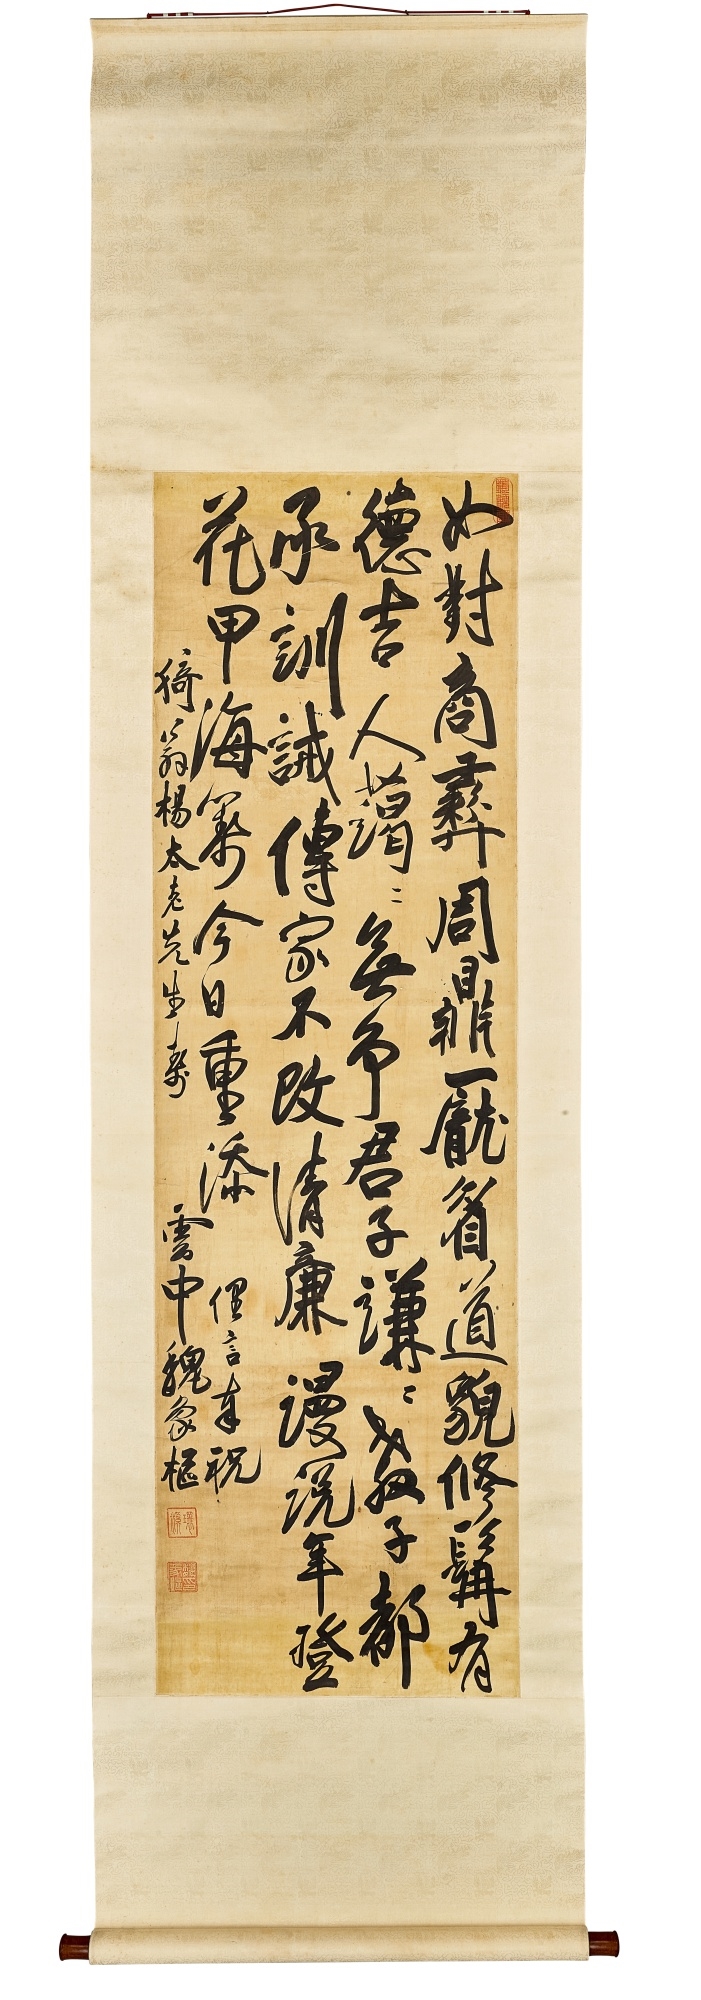 如對商彝周鼎龐眉道貌修髯有
德吉人藹〻無爭君子謙〻教子都
承訓誡傳家不改清廉漫說年登
花甲海籌今日重添俚言奉祝
猗翁楊太老先生壽雲中魏象樞